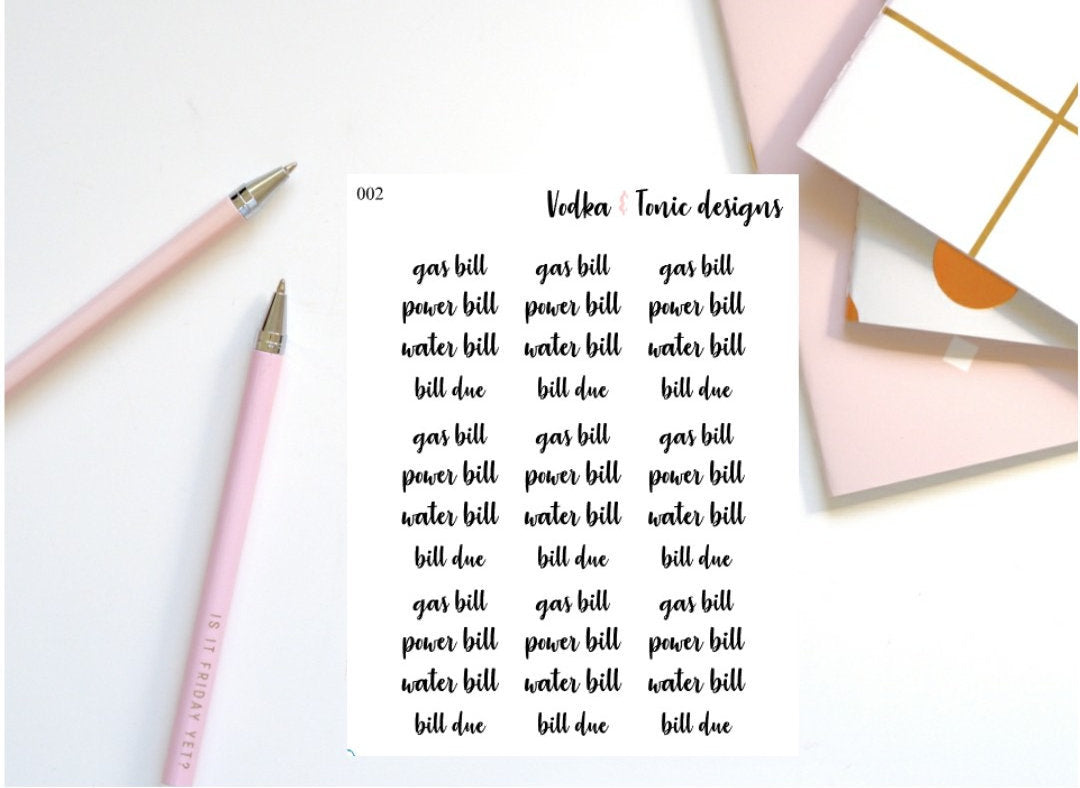 002
Vodka & Tonic designs
gas bill gas bill gas bill
power bill power bill power bill
water bill water bill water bill
bill due bill due bill due
gas bill gas bill gas bill
power bill power bill power bill
water bill water bill water bill
bill due bill due bill due
gas bill gas bill gas bill
power bill power bill power bill
water bill water bill water bill
bill due bill due bill due
IS IT FRIDAY YET?